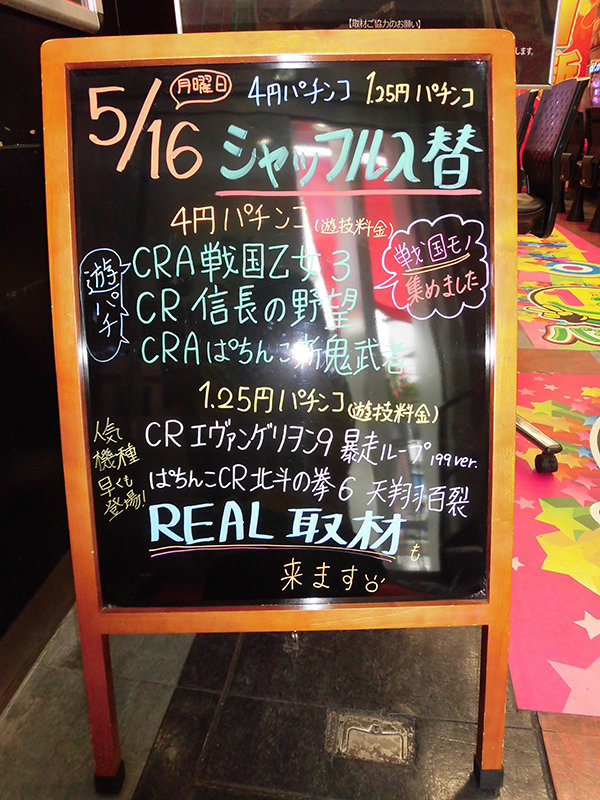 【取材ご協力のお願い】
5/16 月曜日 4円パチンコ 1.25円パチンコ
シャッフル入替
4円パチンコ(遊技料金)
遊パチ
CRA戦国乙女3
CR 信長の野望
CRAぱちんこ新鬼武者
戦国モノ
集めました
1.25円パチンコ(遊技料金)
人気
機種
早くも
登場!
CRエヴァンゲリヲン9 暴走ループ199ver.
ぱちんこCR北斗の拳6 天翔羽百裂
REAL取材も
来ます